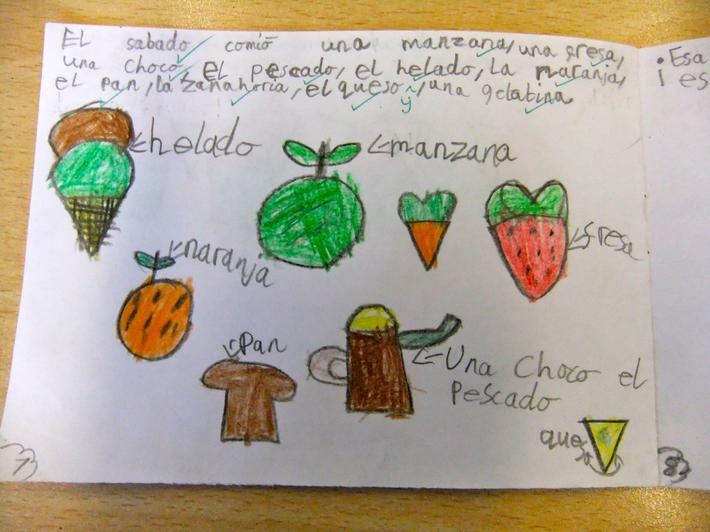 El sabado comió una manzana, una fresa,
una choco, el pescado, el helado, La naranja,
el pan, la zanahoria, el queso y, una gelatina
helado
manzana
fresa
naranja
Pan
Una Choco el
Pescado
que
7
8
• Esa
i es